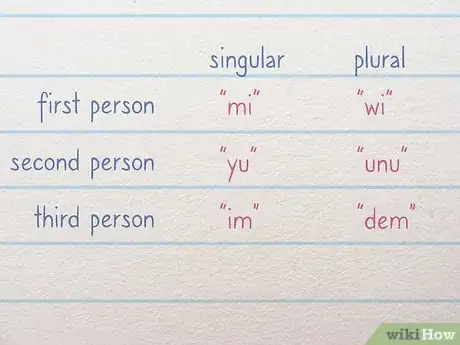 singular plural
first person "mi" "wi"
second person "yu" "unu"
third person "im" "dem"
wikiHow